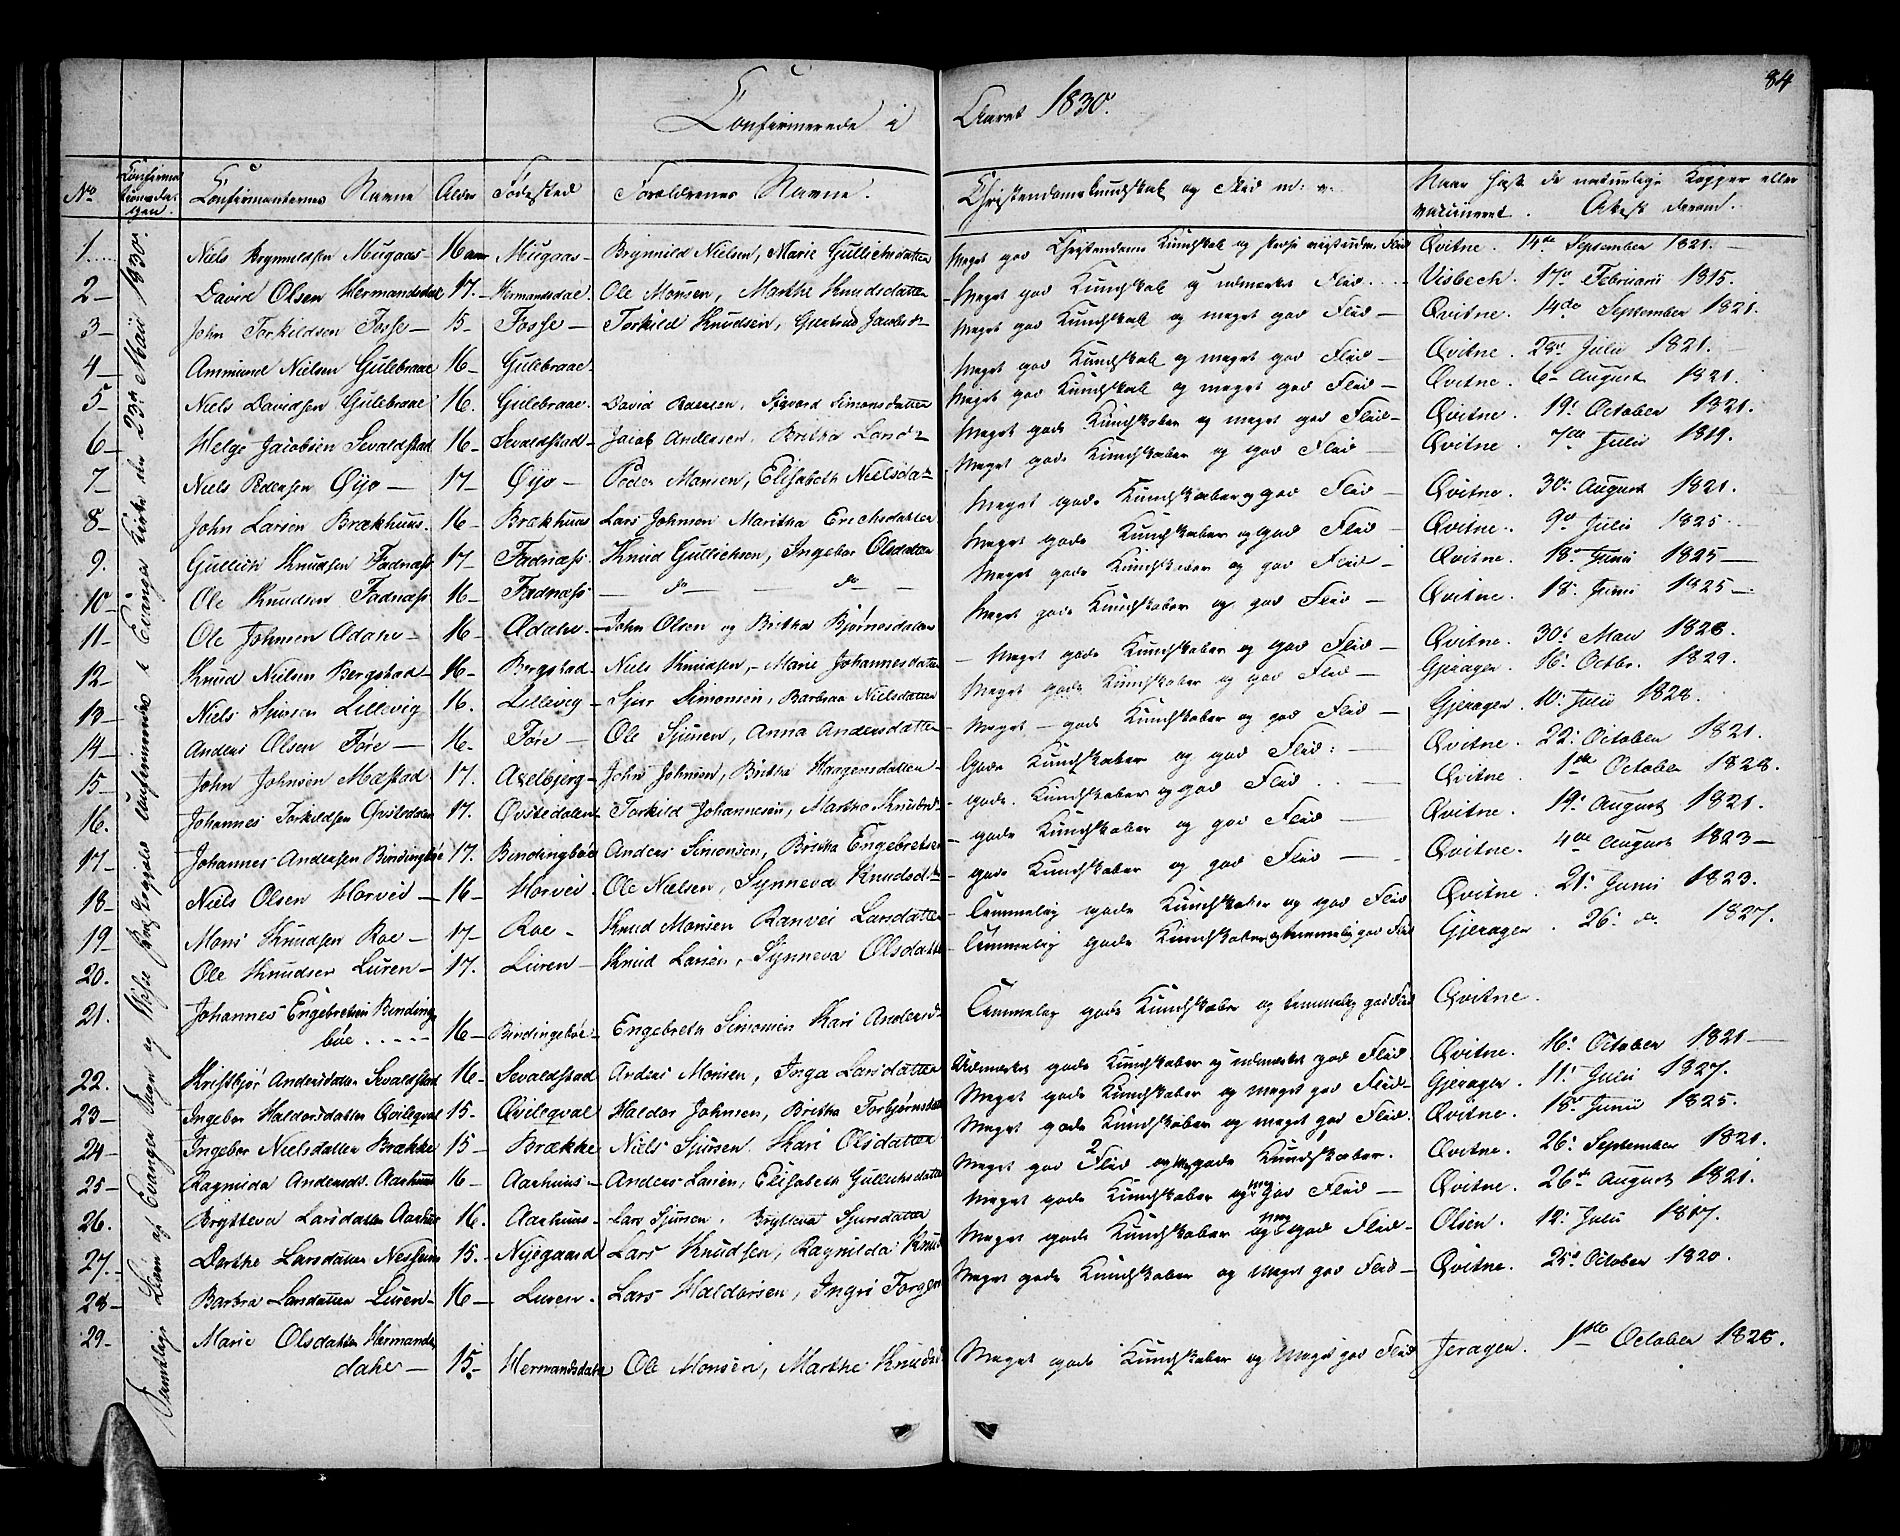 84
Confirmerede i Aaret 1830.
No Confirmationsdagen. Confirmanternes Navne Alder Fødested Forældrenes Navne. Christendomskundskab og Flid m: v. Naar havt de naturlige Kopper eller
vaccineret. Attest derom.
Samtlige Børn af Evanger Sogn og Præstegjeld confirmerede i Evanger Kirke den 23de Maii 1830.
1. Niels Brynnildsen Mugaas 16 aar Mugaas Brynnild Nielsen, Marie Gullichsdatter Meget god Christendoms Kundskab og Flid Qvitne. 14de September 1821.
2 David Olsen Hermandsdal 17. Hermandsdal. Ole Monsen, Marthe Knudsdatter Meget god Kundskab og udmærket Flid. Visbech. 17de Februarii 1815.
3 John Torkildsen Fosse 15 Fosse Torkild Knudsen, Gjertrud Jacobsd. Meget god Kundskab og meget god Flid Qvitne. 14de September 1821.
4 Ammund Nielsen Gullebraae 16 Gullebraae. Meget god Kundskab og meget god Flid Qvitne. 28de Julii 1821.
5 Niels Davidsen Gullebraae 16. Gullebraae. David Simonsdatter Meget god Kundskab og meget god Flid Qvitne. 6 August 1821.
6 Helge Jacobsen Sevaldstad 16 Sevaldstad Jacob Andersen, Britha Larsd. Meget gode Kundskaber og meget god Flid Qvitne. 19. October 1821.
7 Niels Pedersen Øijo 17 Øijo Peder Monsen, Elisabeth Nielsdat. Meget gode Kundskaber og god Flid Qvitne. 7de Julii 1819.
8 John Larsen Brækhuus. 16 Brækhuus Lars Johnsen Maritha Erichsdatter Meget gode Kundskaber og god Flid Qvitne. 30. August 1821.
9. Gullich Knudsen Fadnæss 17 Fadnæss. Knud Gullichsen, Ingebor Olsdatter Meget gode Kundskaber og god Flid Qvitne. 9de Julii 1825.
10 Ole Knudsen Fadnæss 16 Fadnæss do do Meget gode Kundskaber og god Flid Qvitne. 18de Junii 1825
11 Ole Johnsen Ødahr 16 Ødahr. John Olsen og Britha Bjørnesdatter Meget gode Kundskaber og god Flid Qvitne. 18. Junii 1825
12 Knud Nielsen Bergstad 16 Bergstad Niels Knudsen, Marie Johannesdatter Meget gode Kundskaber og god Flid Qvitne. 30. Maii 1828.
13 Niels Sjursen Lillevig 16. Lillevig Sjur Simonsen, Barbraa Nielsdatter Meget gode Kundskaber og god Flid Gjerager. 16. Octbr. 1829.
14 Anders Olsen Føre 16. Føre Ole Sjursen, Anna Andersdatter Meget gode Kundskaber og god Flid Gjerager. 10. Julii 1828.
15 John Johnsen Mæstad 17. Axelbjerg John Johnsen, Britha Haagensdatter Gode Kundskaber og god Flid: Qvitne. 22. October 1821.
16. Johannes Torkildsen Qvitledalen 17. Qvitledalen Torkild Johannesen, Martha Knudsd. gode Kundskaber og god Flid Qvitne. 1de October 1828.
17 Johannes Andersen Bindingbøe 17. Bindingbøe Anders Simonsen, Britha Engebretsen gode Kundskaber og god Flid Qvitne. 19. August 1821.
18 Niels Olsen Horvei 16 Horvei. Ole Nielsen, Synneva Knudsd. gode Kundskaber og god Flid Qvitne. 4de August 1823
19 Mons Knudsen Roe 17 Roe Knud Monsen Ranvei Larsdatter Temmelig gode Kundskaber og god Flid Qvitne. 21. Junii 1823.
20. Ole Knudsen Luren 17. Luren Knud Larsen, Synneva Olsdatter Temmelig gode Kundskaber og temmelig god Flid Gjerager. 26. do. 1827.
21. Johannes Engebretsen Binding
bøe 16 Bindingebøe Engebreth Simonsen Kari Andersd. Temmelig gode Kundskaber og temmelig god Flid Qvitne.
22. Kristbjør Andersdatter Sevaldstad 16 Sevaldstad Anders Monsen, Inga Larsdatter Udmærket gode Kundskaber og udmærket god Flid. Qvitne. 16. October 1821
23 Ingebor Haldorsdatter Qvileqval 15. Qvileqval Haldor Johnsen, Britha Torbjørnsdatter Meget gode Kundskaber og meget god Flid Gjerager. 11. Julii 1827.
24 Ingebor Nielsdatter Brække 15 Brække Niels Sjursen. Kari Olsdatter Meget gode Kundskaber og meget god Flid. Qvitne. 18de Junii 1825.
25 Ragnilda Andersd. Aarhuus 16 Aarhuus Anders Larsen, Elisabeth Gullichsdatter Meget god Flid og gode Kundskaber. Qvitne. 26. September 1821.
26. Brytteva Larsdatter Aarhuus 16. Aarhuus Lars Sjursen. Brytteva Sjursdatter Meget gode Kundskaber og meg god Flid Qvitne. 26de August 1821.
27. Dorthe Larsdatter Nesheim 15. Nyegaard Lars Knudsen, Ragnilda Knud Meget gode Kundskaber og meg god Flid Olsen. 12. Julii 1817.
28 Barbra Larsdatter Luren 16 Luren Lars Haldorsen, Ingri Torger Meget gode Kundskaber og Meget god Flid Qvitne. 25de October 1820.
29 Marie Olsdatter Hermands
dahl 15. Hermandsdahl Ole Monsen, Marthe Knudsd Meget gode Kundskaber og Meget god Flid Jeragen. 1ste October 1828.